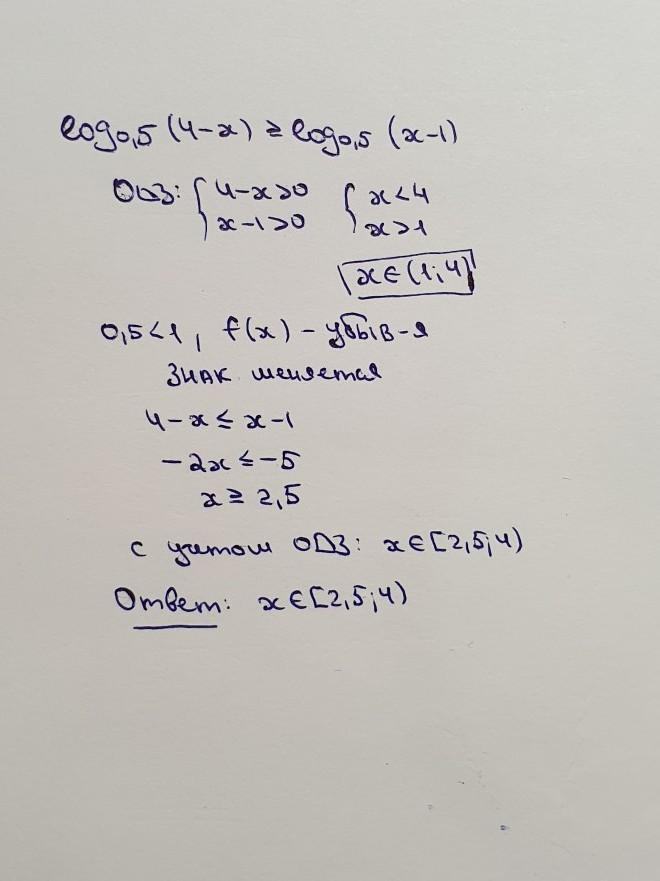 log₀,₅ (4-x) ≥ log₀,₅ (x-1)
ОДЗ: { 4-x>0 { x<4
x-1>0 x>1
x∈(1;4)
0,5<1, f(x) - убыв-я
знак меняется
4-x ≤ x-1
-2x ≤ -5
x ≥ 2,5
с учетом ОДЗ: x∈[2,5;4)
Ответ: x∈[2,5;4)